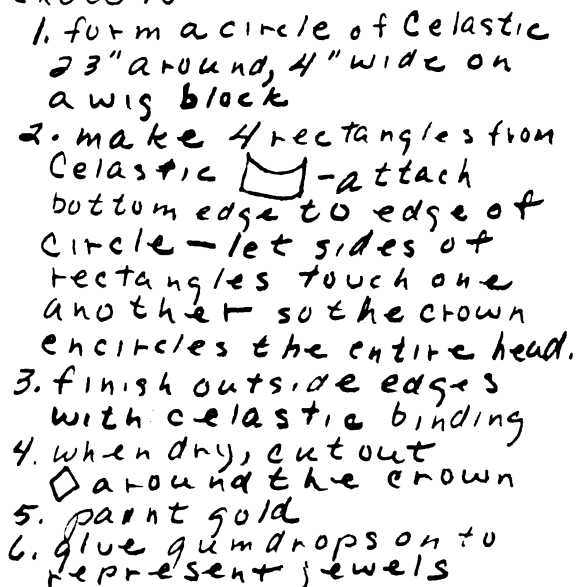 1. form a circle of Celastic
23" around, 4" wide on
a wig block
2. make 4 rectangles from
Celastic - attach
bottom edge to edge of
circle - let sides of
rectangles touch one
another so the crown
encircles the entire head.
3. finish outside edges
with celastic binding
4. when dry, cut out
around the crown
5. paint gold
6. glue gumdrops on to
represent jewels